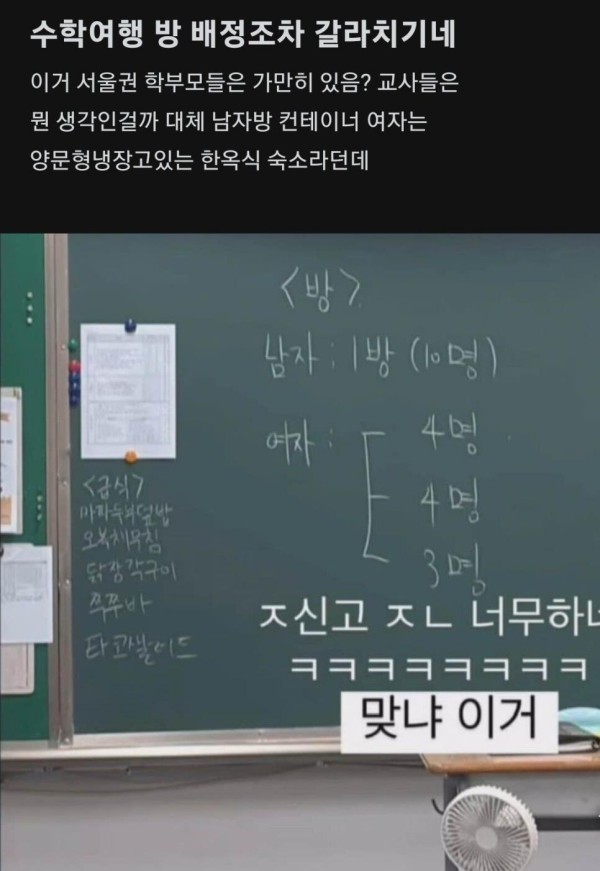 수학여행 방 배정조차 갈라치기네
이거 서울권 학부모들은 가만히 있음? 교사들은
뭔 생각인걸까 대체 남자방 컨테이너 여자는
양문형냉장고있는 한옥식 숙소라던데
<방>
남자 : 1방 (10명)
여자 :
4명
4명
3명
<급식>
마파두부덮밥
오복채무침
닭장각구이
쭉쭈바
타코샐러드
ㅈ신고 ㅈㄴ 너무하네
ㅋㅋㅋㅋㅋㅋㅋㅋㅋ
맞냐 이거